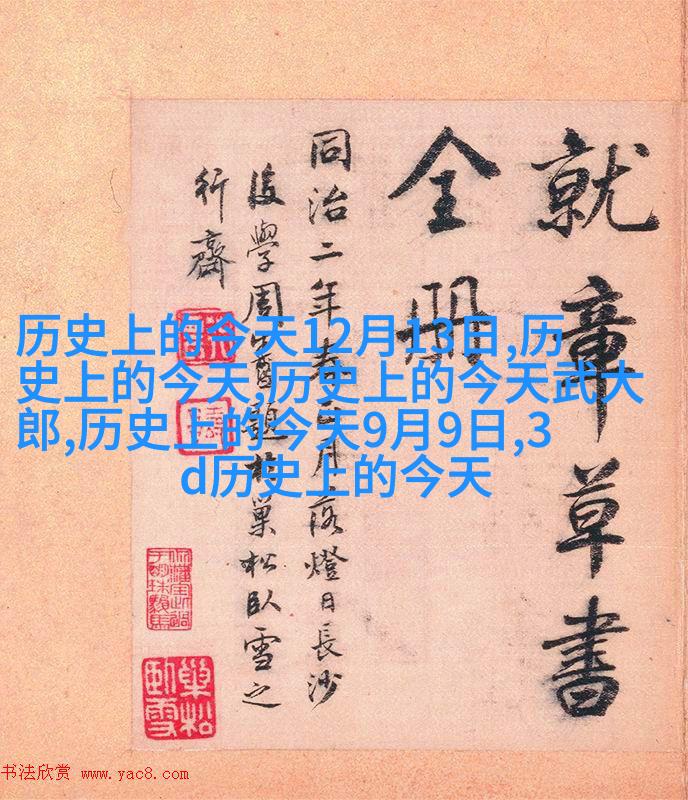 就章草書
全册
同治二年春正月落燈日長沙
後學周題於巢松臥雪之
行齋
历史上的今天12月13日,历
史上的今天,历史上的今天武大
郎,历史上的今天9月9日,3
d历史上的今天
巢松
臥雪
书法欣赏 www.yac8.com